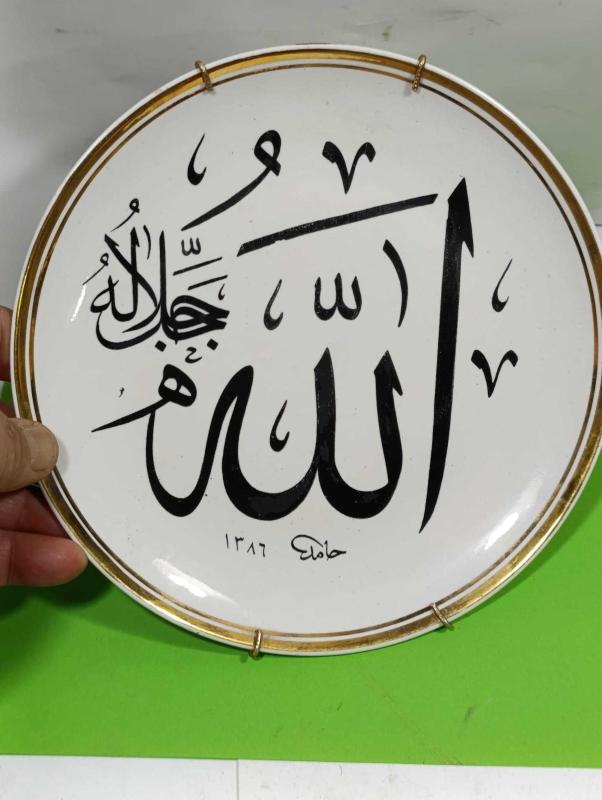 الله
جل جلاله
حامد ١٣٨٦